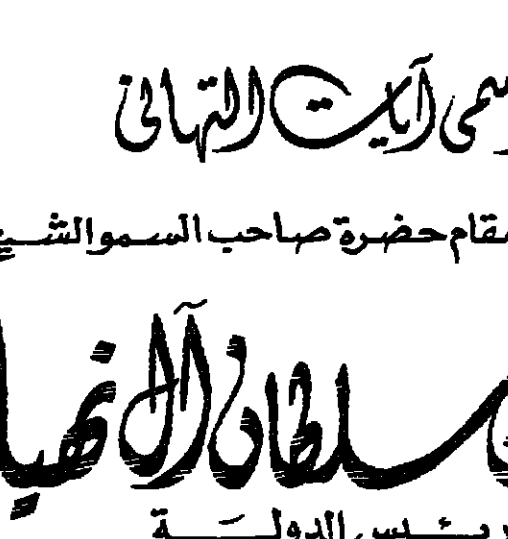 سمى آيات التهاني
مقام حضرة صاحب السمو الشيخ
سلطان آل نهيا
رئيس الدولة